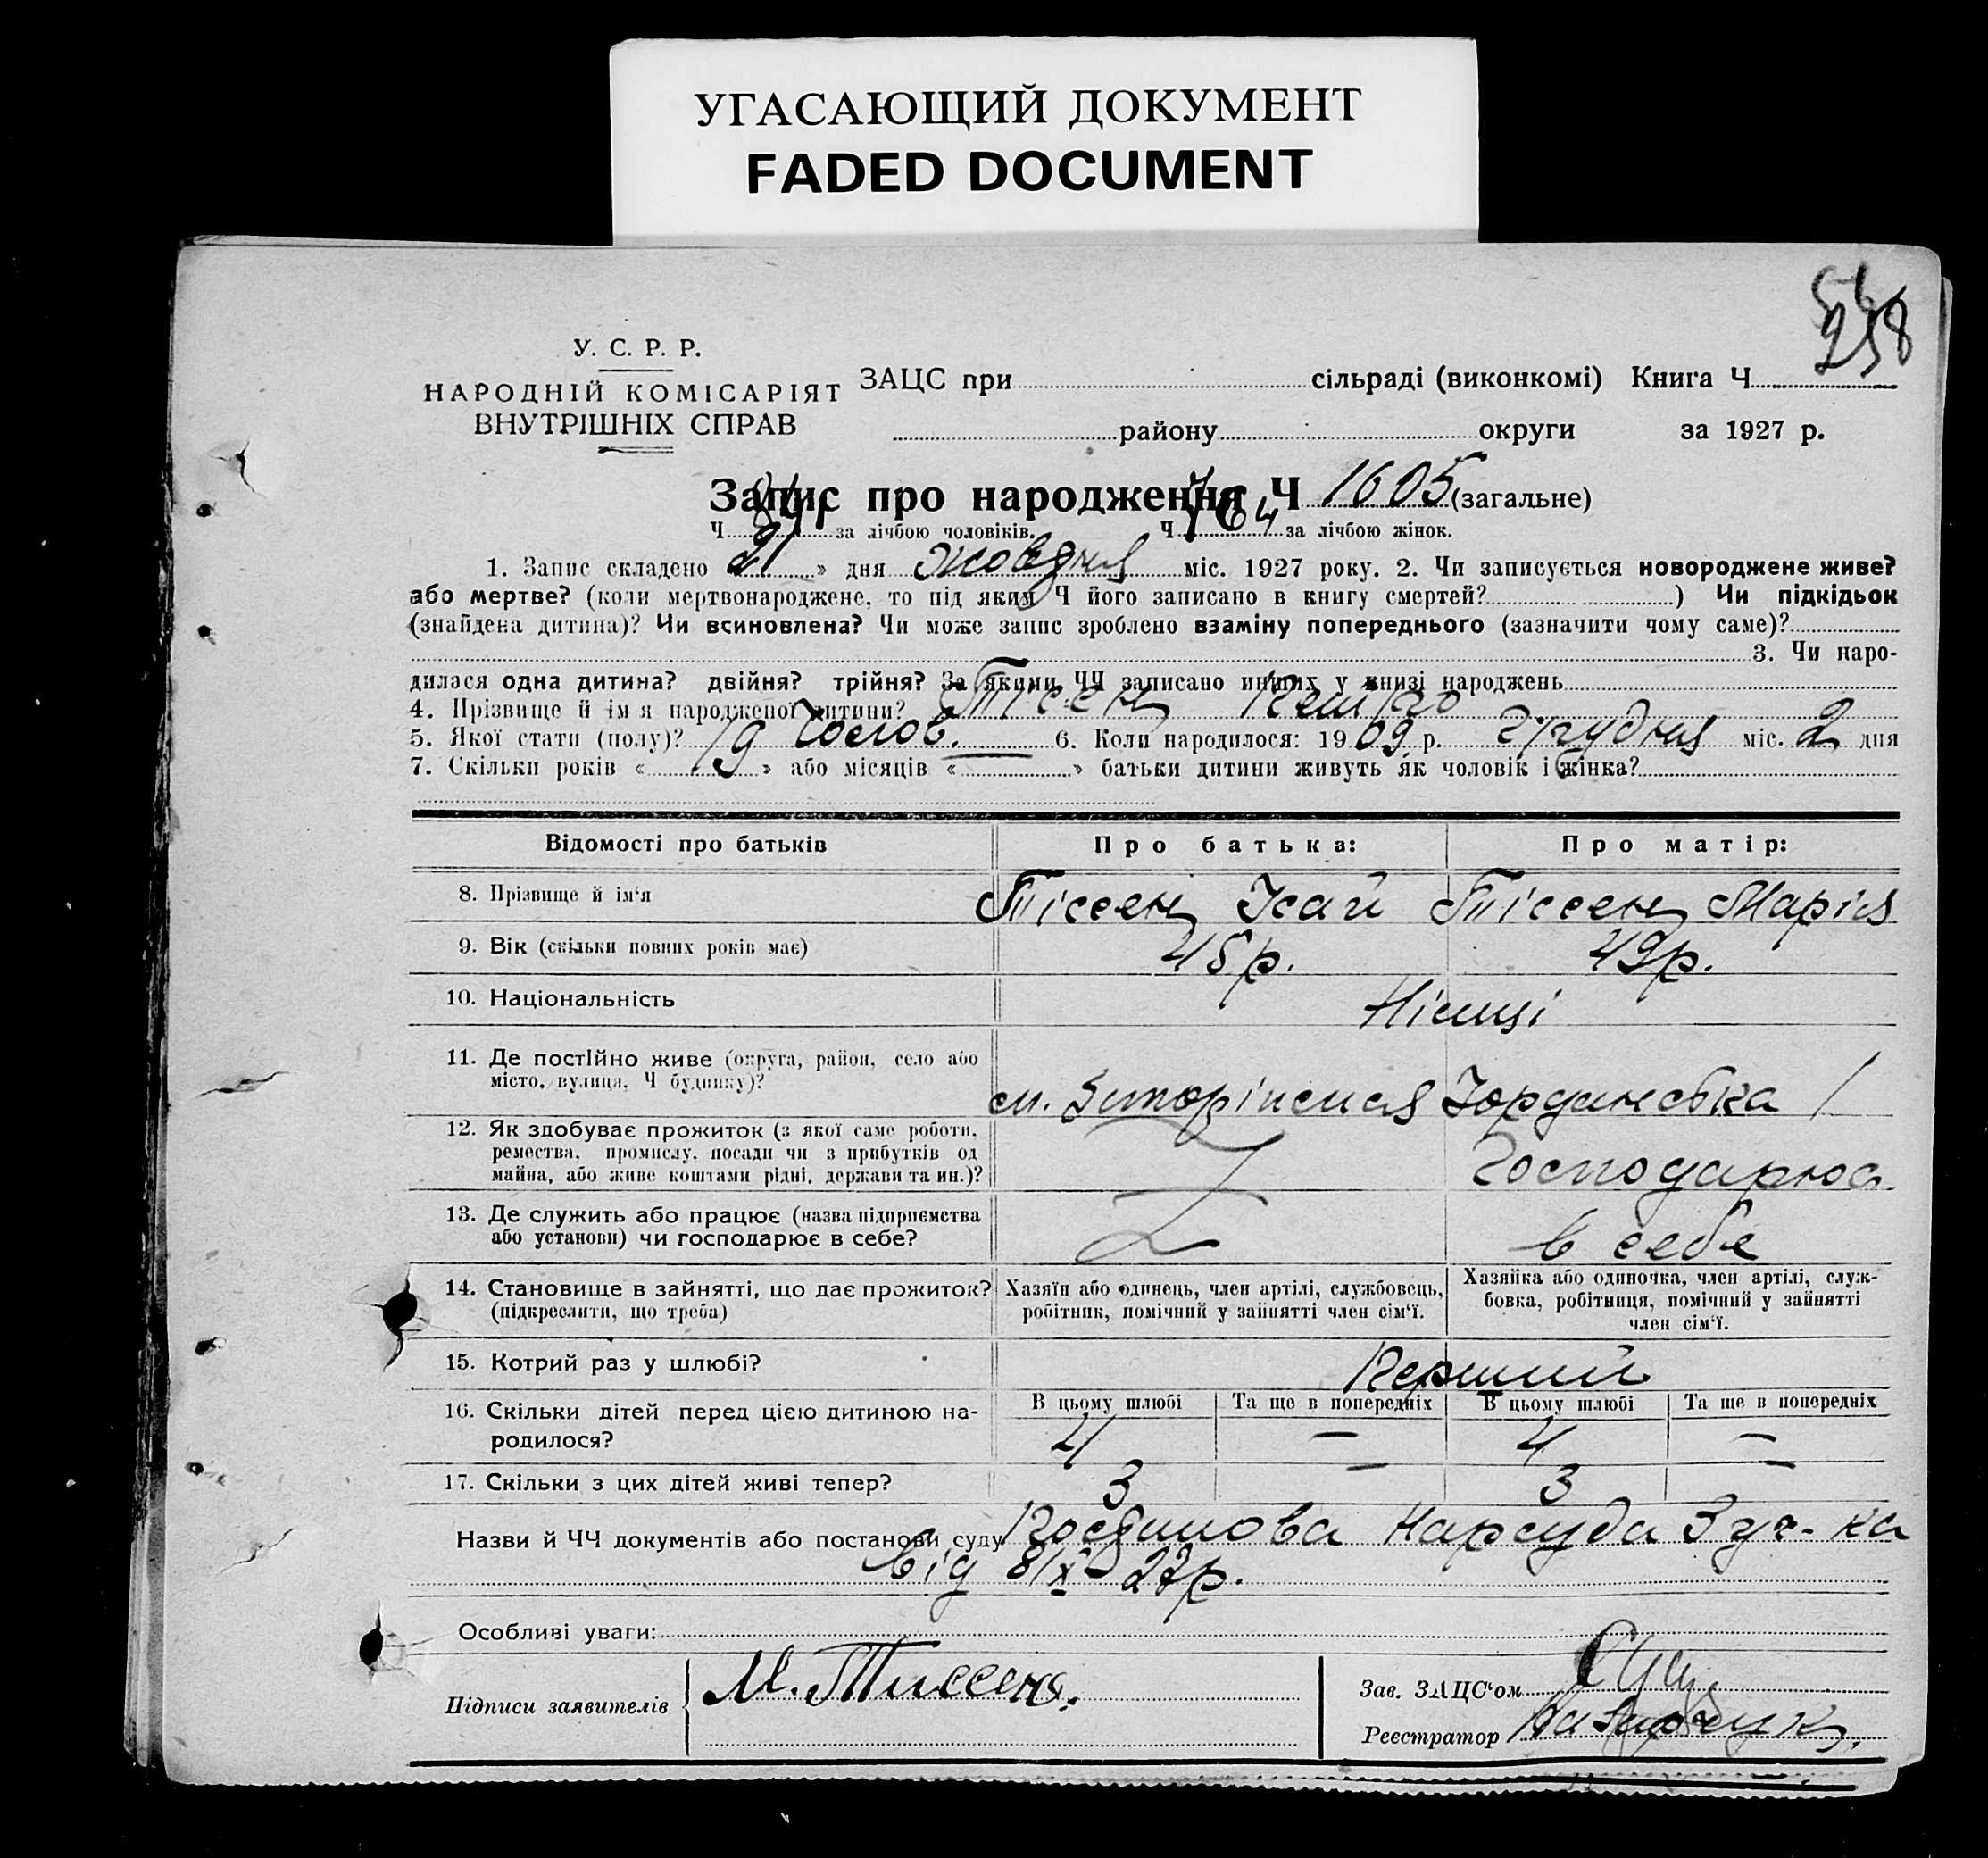 УГАСАЮЩИЙ ДОКУМЕНТ
FADED DOCUMENT
258
У. С. Р. Р.
НАРОДНІЙ КОМІСАРІЯТ
ВНУТРІШНІХ СПРАВ
ЗАЦС при сільраді (виконкомі) Книга Ч
району округи за 1927 р.
Запис про народження Ч 1605 (загальне)
Ч 841 за лічбою чоловіків. Ч 764 за лічбою жінок.
1. Запис складено « 21 » дня жовтня міс. 1927 року. 2. Чи записується новороджене живе?
або мертве? (коли мертвонароджене, то під яким Ч його записано в книгу смертей? ) Чи підкідьок
(знайдена дитина)? Чи всиновлена? Чи може запис зроблено взаміну попереднього (зазначити чому саме)?
3. Чи наро-
дилася одна дитина? двійня? трійня? За якими ЧЧ записано инших у книзі народжень
4. Прізвище й ім я народженої дитини? Тіссен Петро
5. Якої стати (полу)? Чолов. 6. Коли народилося: 1909 р. Грудня міс. 2 дня
7. Скільки років « 19 » або місяців « — » батьки дитини живуть як чоловік і жінка?
Відомості про батьків Про батька: Про матір:
8. Прізвище й ім‘я Тіссен Ісай Тіссен Марія
9. Вік (скільки повних років має) 45р. 49р.
10. Національність Німці
11. Де постІйно живе (округа, район, село або
місто, вулиця, Ч будинку)?
м. Юрданська 1
12. Як здобуває прожиток (з якої саме роботи,
ремества, промислу, посади чи з прибутків од
майна, або живе коштами рідні, держави та ин.)?
Господарює
13. Де служить або працює (назва підприємства
або установи) чи господарює в себе?
в себе
14. Становище в зайнятті, що дає прожиток?
(підкреслити, що треба)
Хазяїн або одинець, член артілі, службовець,
робітник, помічний у зайнятті член сім‘ї.
Хазяйка або одиночка, член артілі, служ-
бовка, робітниця, помічний у зайнятті
член сім‘ї.
15. Котрий раз у шлюбі? Перший
16. Скільки дітей перед цією дитиною на-
родилося?
В цьому шлюбі Та ще в попередніх В цьому шлюбі Та ще в попередніх
4 — 4 —
17. Скільки з цих дітей живі тепер? 3 — 3 —
Назви й ЧЧ документів або постанови суду Постанова Нарсуда 3 уч-ка
від 8/X-27р.
Особливі уваги:
Підписи заявителів М. Тиссен.
Зав. ЗАЦС‘ом
Реєстратор